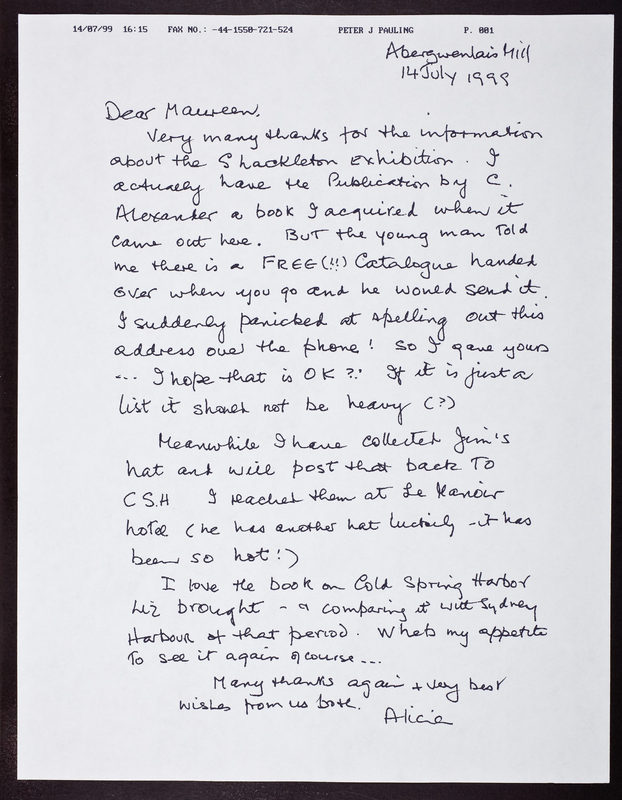 14/07/99 16:15 FAX NO.: -44-1550-721-524 PETER J PAULING P. 001
Abergwenlais Mill
14 July 1999
Dear Maureen,
Very many thanks for the information
about the Shackleton Exhibition. I
actually have the Publication by C.
Alexander a book I acquired when it
came out here. BUT the young man Told
me there is a FREE(!!) Catalogue handed
over when you go and he would send it.
I suddenly panicked at spelling out this
address over the phone! So I gave yours
--- I hope that is OK?! If it is just a
list it should not be heavy (?)
Meanwhile I have collected Jim's
hat and will post that back To
CSH I reached them at Le Manoir
hotel (he has another hat luckily - it has
been so hot!)
I love the book on Cold Spring Harbor
Liz brought - a comparing it with Sydney
Harbour of that period. Whets my appetite
To see it again of course ---
Many thanks again + very best
wishes from us both.
Alicia